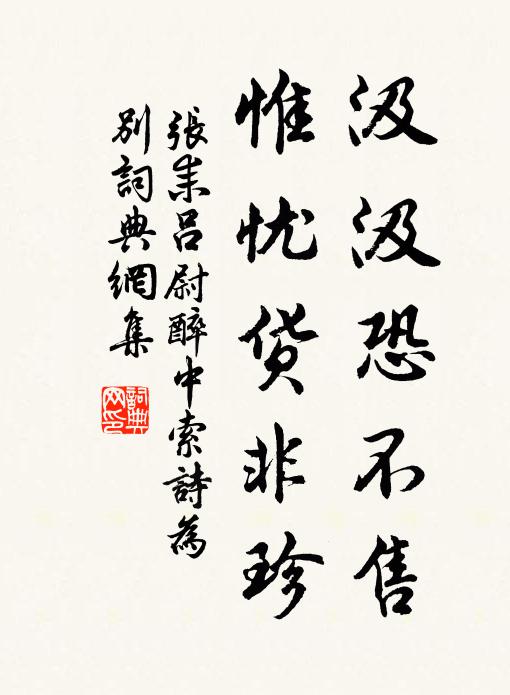 汲汲恐不售
惟忧货非珍
張耒吕尉醉中索詩為
别詞典網集
詞典网印